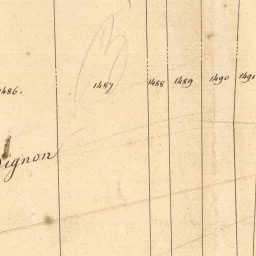 1486. 1487 1488 1489 1490 1491
ignon